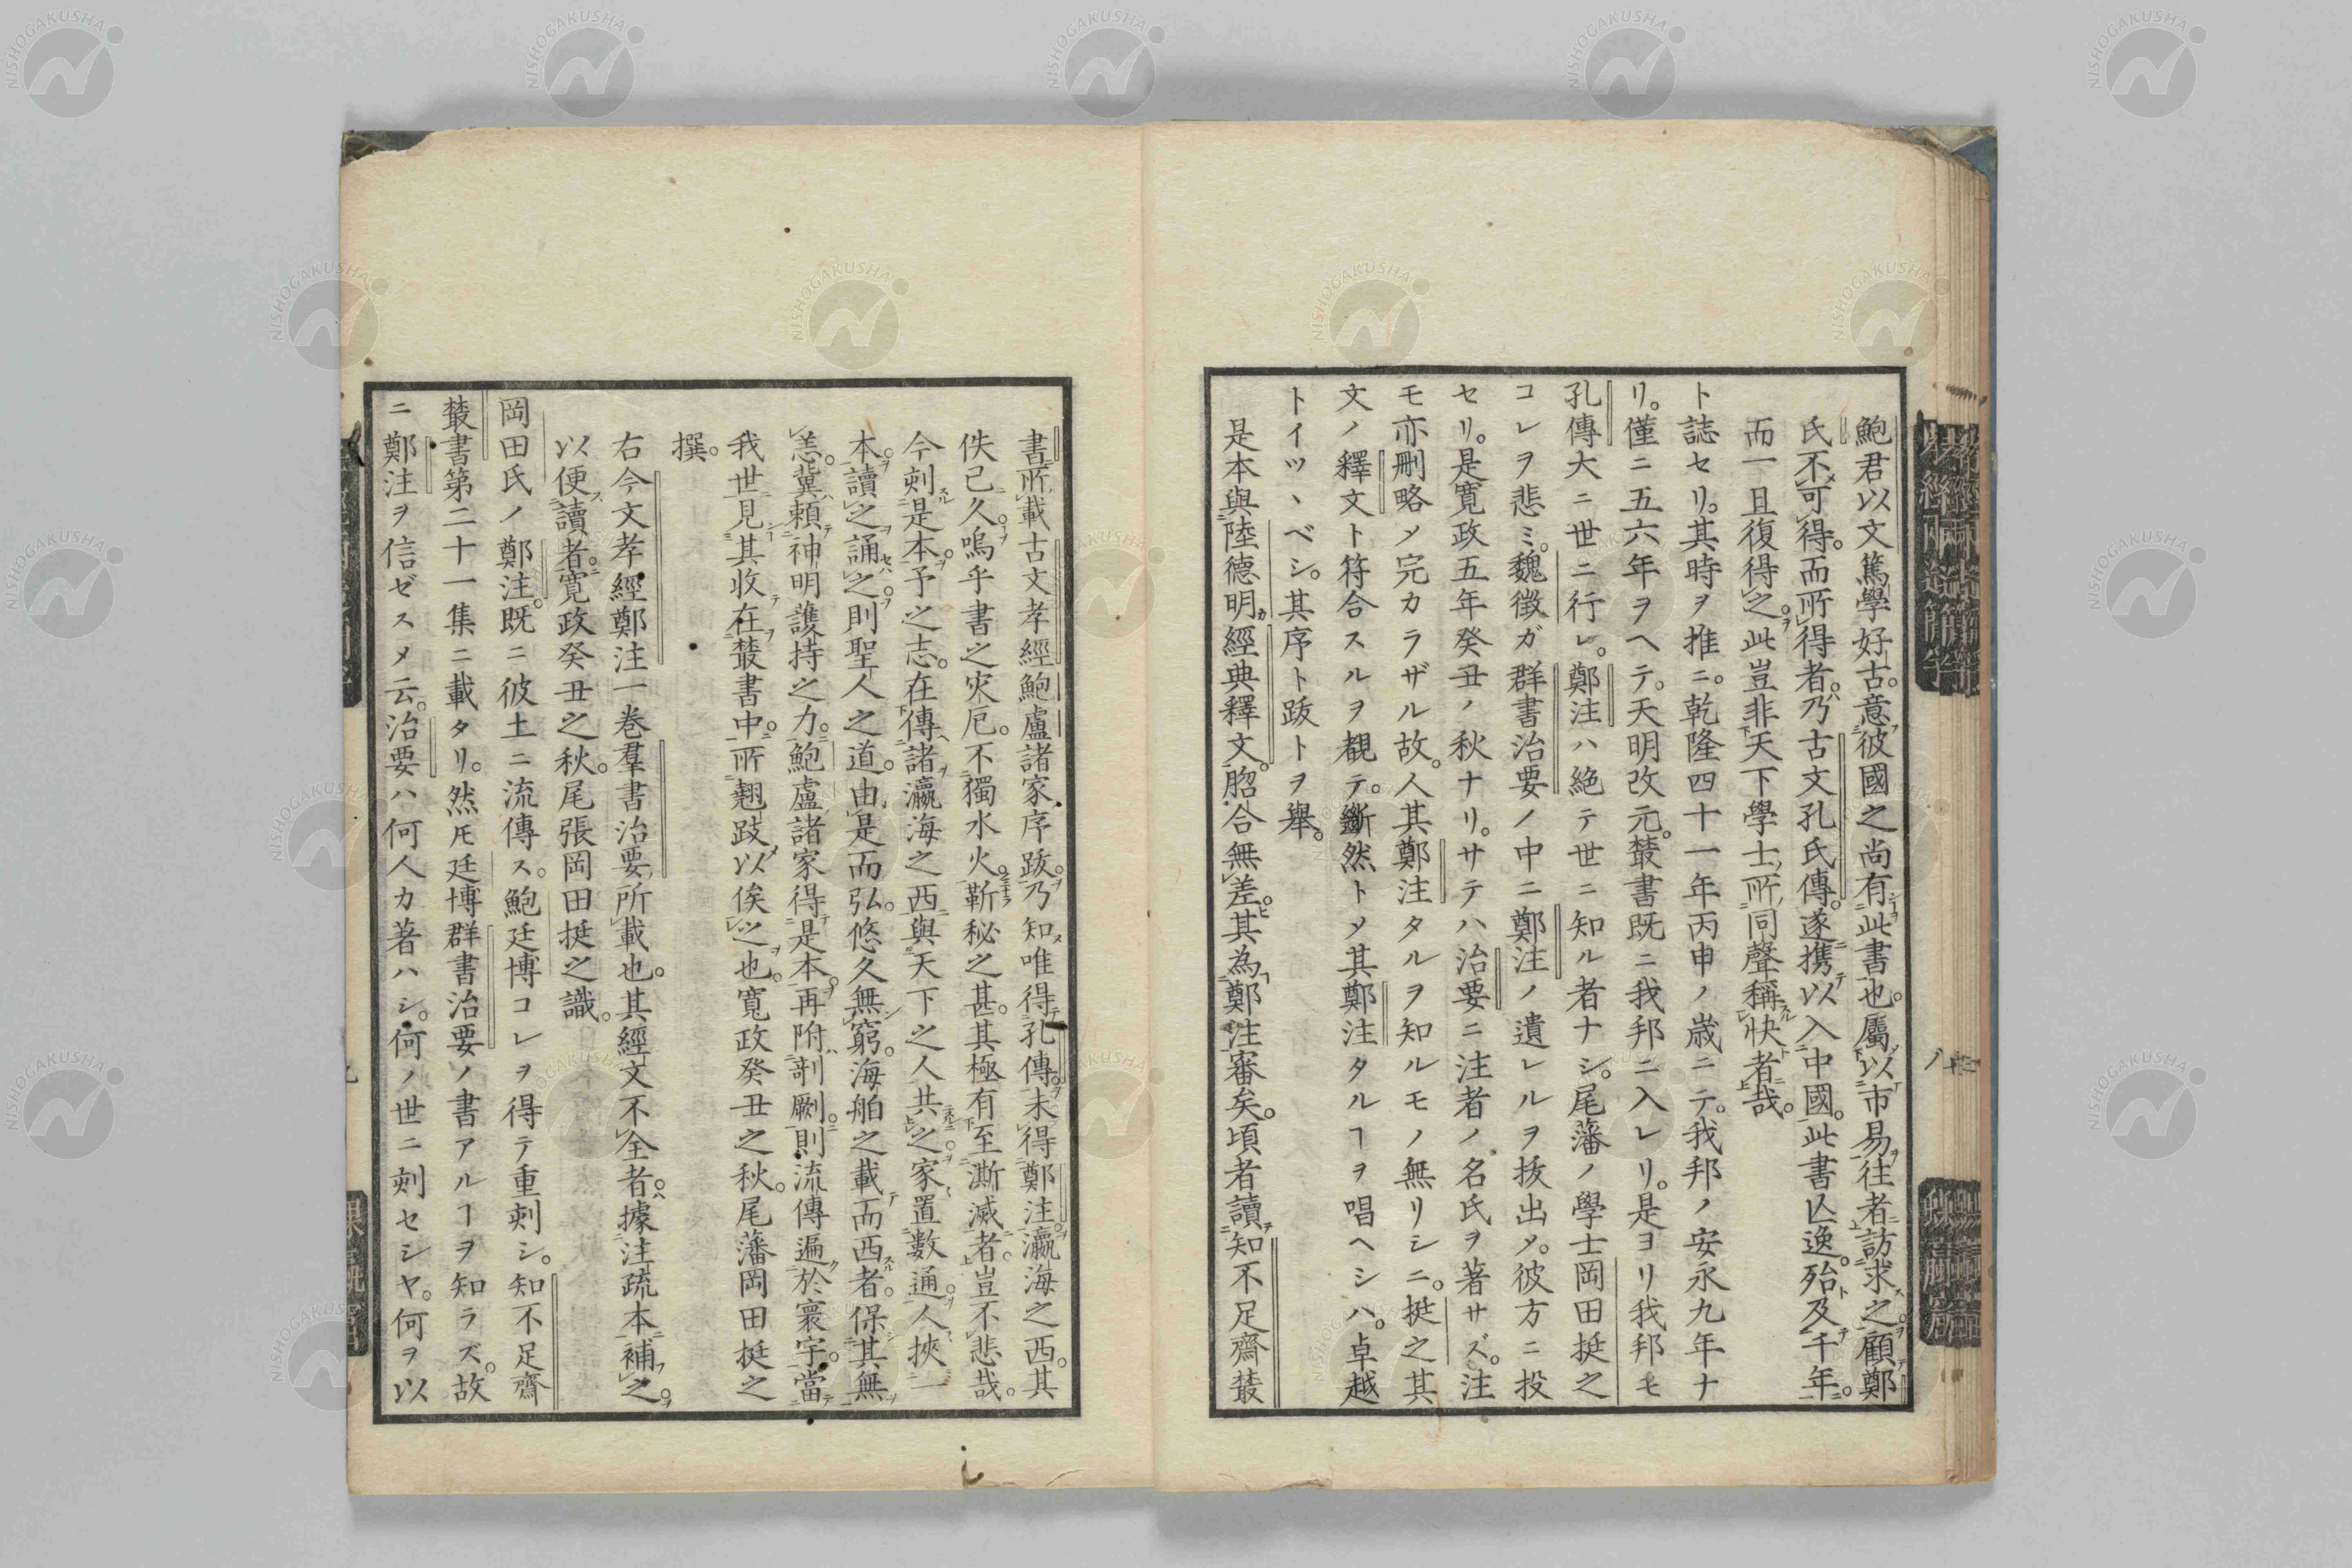 鮑君以文篤學好古。意彼國之尚有此書也。屬以市易往者訪求之。顧鄭
氏不可得。而所得者。乃古文孔氏傳。遂携以入中國。此書亾逸。殆及千年。
而一旦復得之。此豈非天下學士所同聲稱快者哉。
ト誌セリ。其時ヲ推ニ。乾隆四十一年丙申ノ歳ニテ。我邦ノ安永九年ナ
リ。僅ニ五六年ヲヘテ。天明改元。叢書既ニ我邦ニ入レリ。是ヨリ我邦モ
孔傳大ニ世ニ行レ。鄭注ハ絶テ世ニ知ル者ナシ。尾藩ノ學士岡田挺之
コレヲ悲ミ。魏徴ガ群書治要ノ中ニ鄭注ノ遺レルヲ抜出メ。彼方ニ投
セリ。是寛政五年癸丑ノ秋ナリ。サテハ治要ニ注者ノ名氏ヲ著サズ。注
モ亦刪略メ完カラザル故。人其鄭注タルヲ知ルモノ無リシニ。挺之其
文ノ釋文ト符合スルヲ覩テ。斷然トメ其鄭注タルヿヲ唱ヘシハ。卓越
トイツヽベシ。其序ト跋トヲ擧。
是本與陸德明經典釋文。脗合無差。其為鄭注審矣。頃者讀知不足齋叢
書所載古文孝經鮑盧諸家序跋。乃知唯得孔傳。未得鄭注。瀛海之西。其
佚已久。嗚乎書之灾厄。不獨水火。靳秘之甚。其極有至澌滅者。豈不悲哉。
今刻是本。予之志。在傳諸瀛海之西。與天下之人共之。家置數通。人挾一
本。讀之誦之。則聖人之道。由是而弘。悠久無窮。海舶之載而西者。保其無
恙。冀賴神明護持之力。鮑盧諸家得是本。再附剞劂。則流傳遍於寰宇。當
我世見其收在叢書中。所翹跂以俟之也。寛政癸丑之秋。尾藩岡田挺之
撰。
右今文孝經鄭注一卷羣書治要所載也。其經文不全者。據注疏本補之。
以便讀者。寛政癸丑之秋。尾張岡田挺之識。
岡田氏ノ鄭注。既ニ彼土ニ流傳ス。鮑廷博コレヲ得テ重刻シ。知不足齋
叢書第二十一集ニ載タリ。然𪜈廷博群書治要ノ書アルヿヲ知ラズ。故
ニ鄭注ヲ信ゼスメ云。治要ハ何人カ著ハシ。何ノ世ニ刻セシヤ。何ヲ以
NISHOGAKUSHA